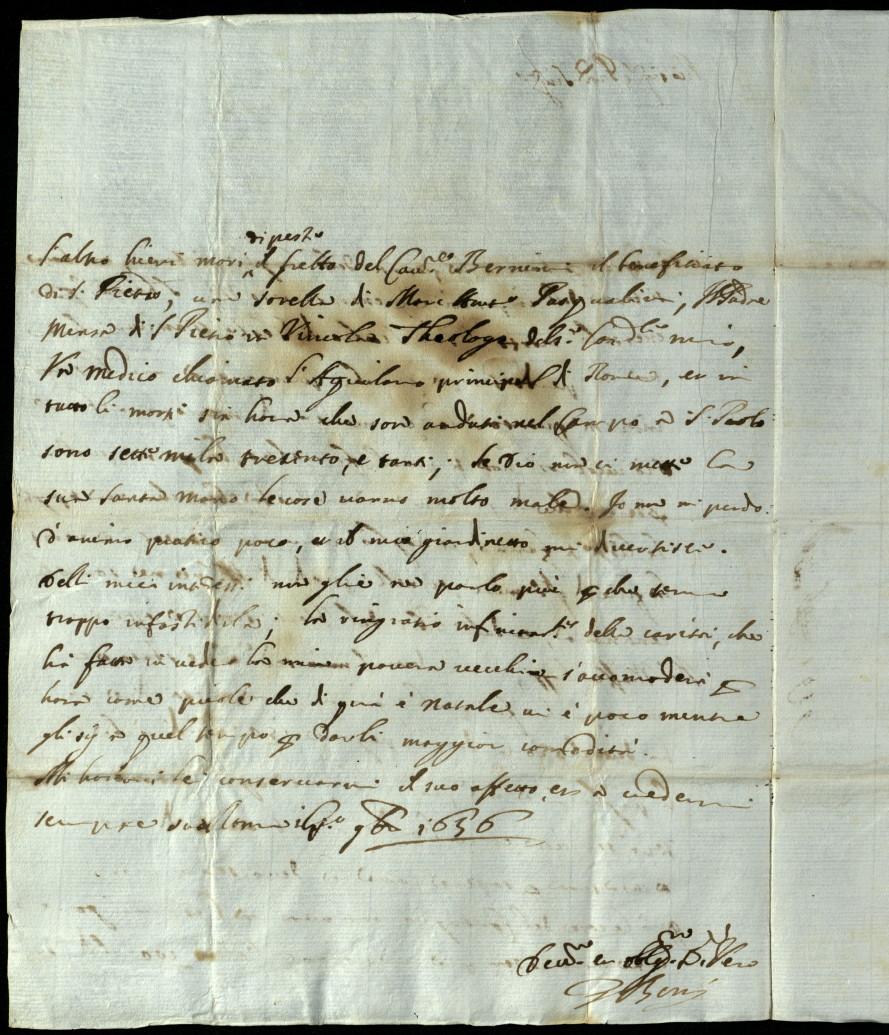 di peste
L'altro hieri morì il fratto del Cau.re Bernini il beneficiato
di S. Pietro, una sorella di Marc Ant.o Pasqualini, Il Padre
di S Pietro in Vincola Theologo del S.r Card.le mio,
Un medico chiamato principal di Roma, et in
tutto li morti sin hora che sono andati nel Campo a S. Paolo
sono sette mila trecento, e tanti; se Dio non ci mette la
sua santa mano le cose vanno molto male. Io non mi perdo
d'animo pratico poco, et il mio giardinetto mi divertisce.
Delli miei non glie ne parlo più che temo
troppo infastidirla; la ringratio infinitam.te della carità, che
hà fatto la povera vecchia s'accomoderà
hora come puole che di quà è Natale vi è poco mentre
gli a quel tempo darli maggior comodità.
Mi honori lei conservarmi il suo affetto, et a
sempre suo Roma il p.o 9bre 1656
Dev.mo et oblig.mo Vero